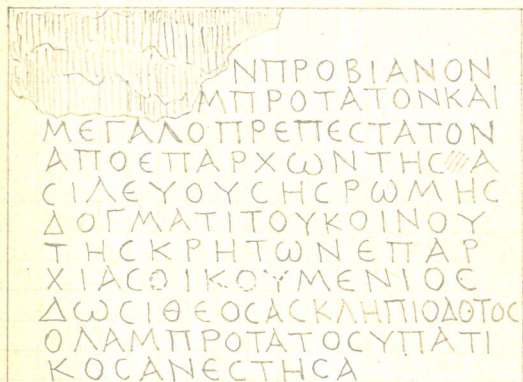 ΝΠΡΟΒΙΑΝΟΝ
ΜΠΡΟΤΑΤΟΝΚΑΙ
ΜΕΓΑΛΟΠΡΕΠΕϹΤΑΤΟΝ
ΑΠΟΕΠΑΡΧωΝΤΗϹ Α
ϹΙΛΕΥΟΥϹΗϹΡωΜΗϹ
ΔΟΓΜΑΤΙΤΟΥΚΟΙΝΟΥ
ΤΗϹΚΡΗΤωΝΕΠΑΡ
ΧΙΑϹΟΙΚΟΥΜΕΝΙΟϹ
ΔωϹΙΘΕΟϹΑϹΚΛΗΠΙΟΔΟΤΟϹ
ΟΛΑΜΠΡΟΤΑΤΟϹΥΠΑΤΙ
ΚΟϹΑΝΕϹΤΗϹΑ